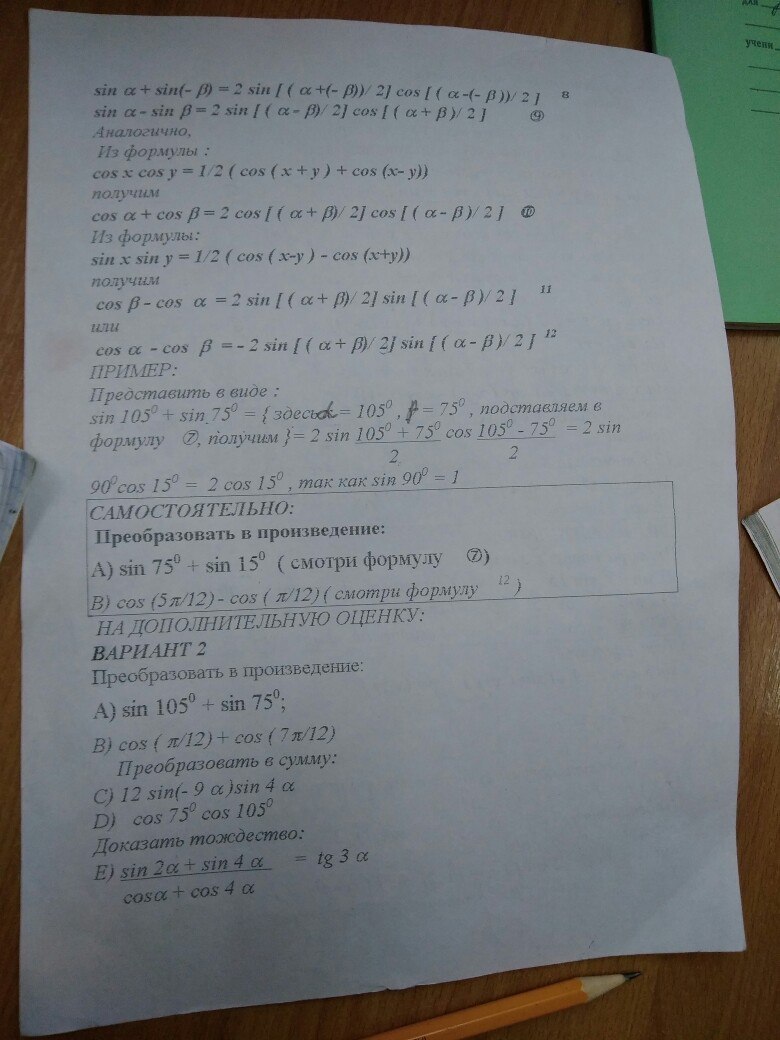 для
учени
sin α + sin(- β) = 2 sin [ ( α +(- β))/ 2] cos [ ( α -(- β ))/ 2 ] в
sin α - sin β = 2 sin [ ( α - β)/ 2] cos [ ( α + β )/ 2 ] ⑨
Аналогично,
Из формулы :
cos x cos y = 1/2 ( cos ( x + y ) + cos (x- y))
получим
cos α + cos β = 2 cos [ ( α + β)/ 2] cos [ ( α - β )/ 2 ] ⑩
Из формулы:
sin x sin y = 1/2 ( cos ( x-y ) - cos (x+y))
получим
cos β - cos α = 2 sin [ ( α + β)/ 2] sin [ ( α - β )/ 2 ] 11
или
cos α - cos β = - 2 sin [ ( α + β)/ 2] sin [ ( α - β )/ 2 ] 12
ПРИМЕР:
Представить в виде :
sin 105⁰ + sin 75⁰ = { здесь α = 105⁰ , β = 75⁰ , подставляем в
формулу ⑦, получим }= 2 sin 105⁰ + 75⁰ cos 105⁰ - 75⁰ = 2 sin
2 2
90⁰cos 15⁰ = 2 cos 15⁰ , так как sin 90⁰ = 1
САМОСТОЯТЕЛЬНО:
Преобразовать в произведение:
А) sin 75⁰ + sin 15⁰ ( смотри формулу ⑦)
В) cos (5π/12) - cos ( π/12) ( смотри формулу 12 )
НА ДОПОЛНИТЕЛЬНУЮ ОЦЕНКУ:
ВАРИАНТ 2
Преобразовать в произведение:
А) sin 105⁰ + sin 75⁰;
В) cos ( π/12) + cos ( 7π/12)
Преобразовать в сумму:
С) 12 sin(- 9 α )sin 4 α
D) cos 75⁰ cos 105⁰
Доказать тождество:
Е) sin 2α + sin 4 α = tg 3 α
cosα + cos 4 α